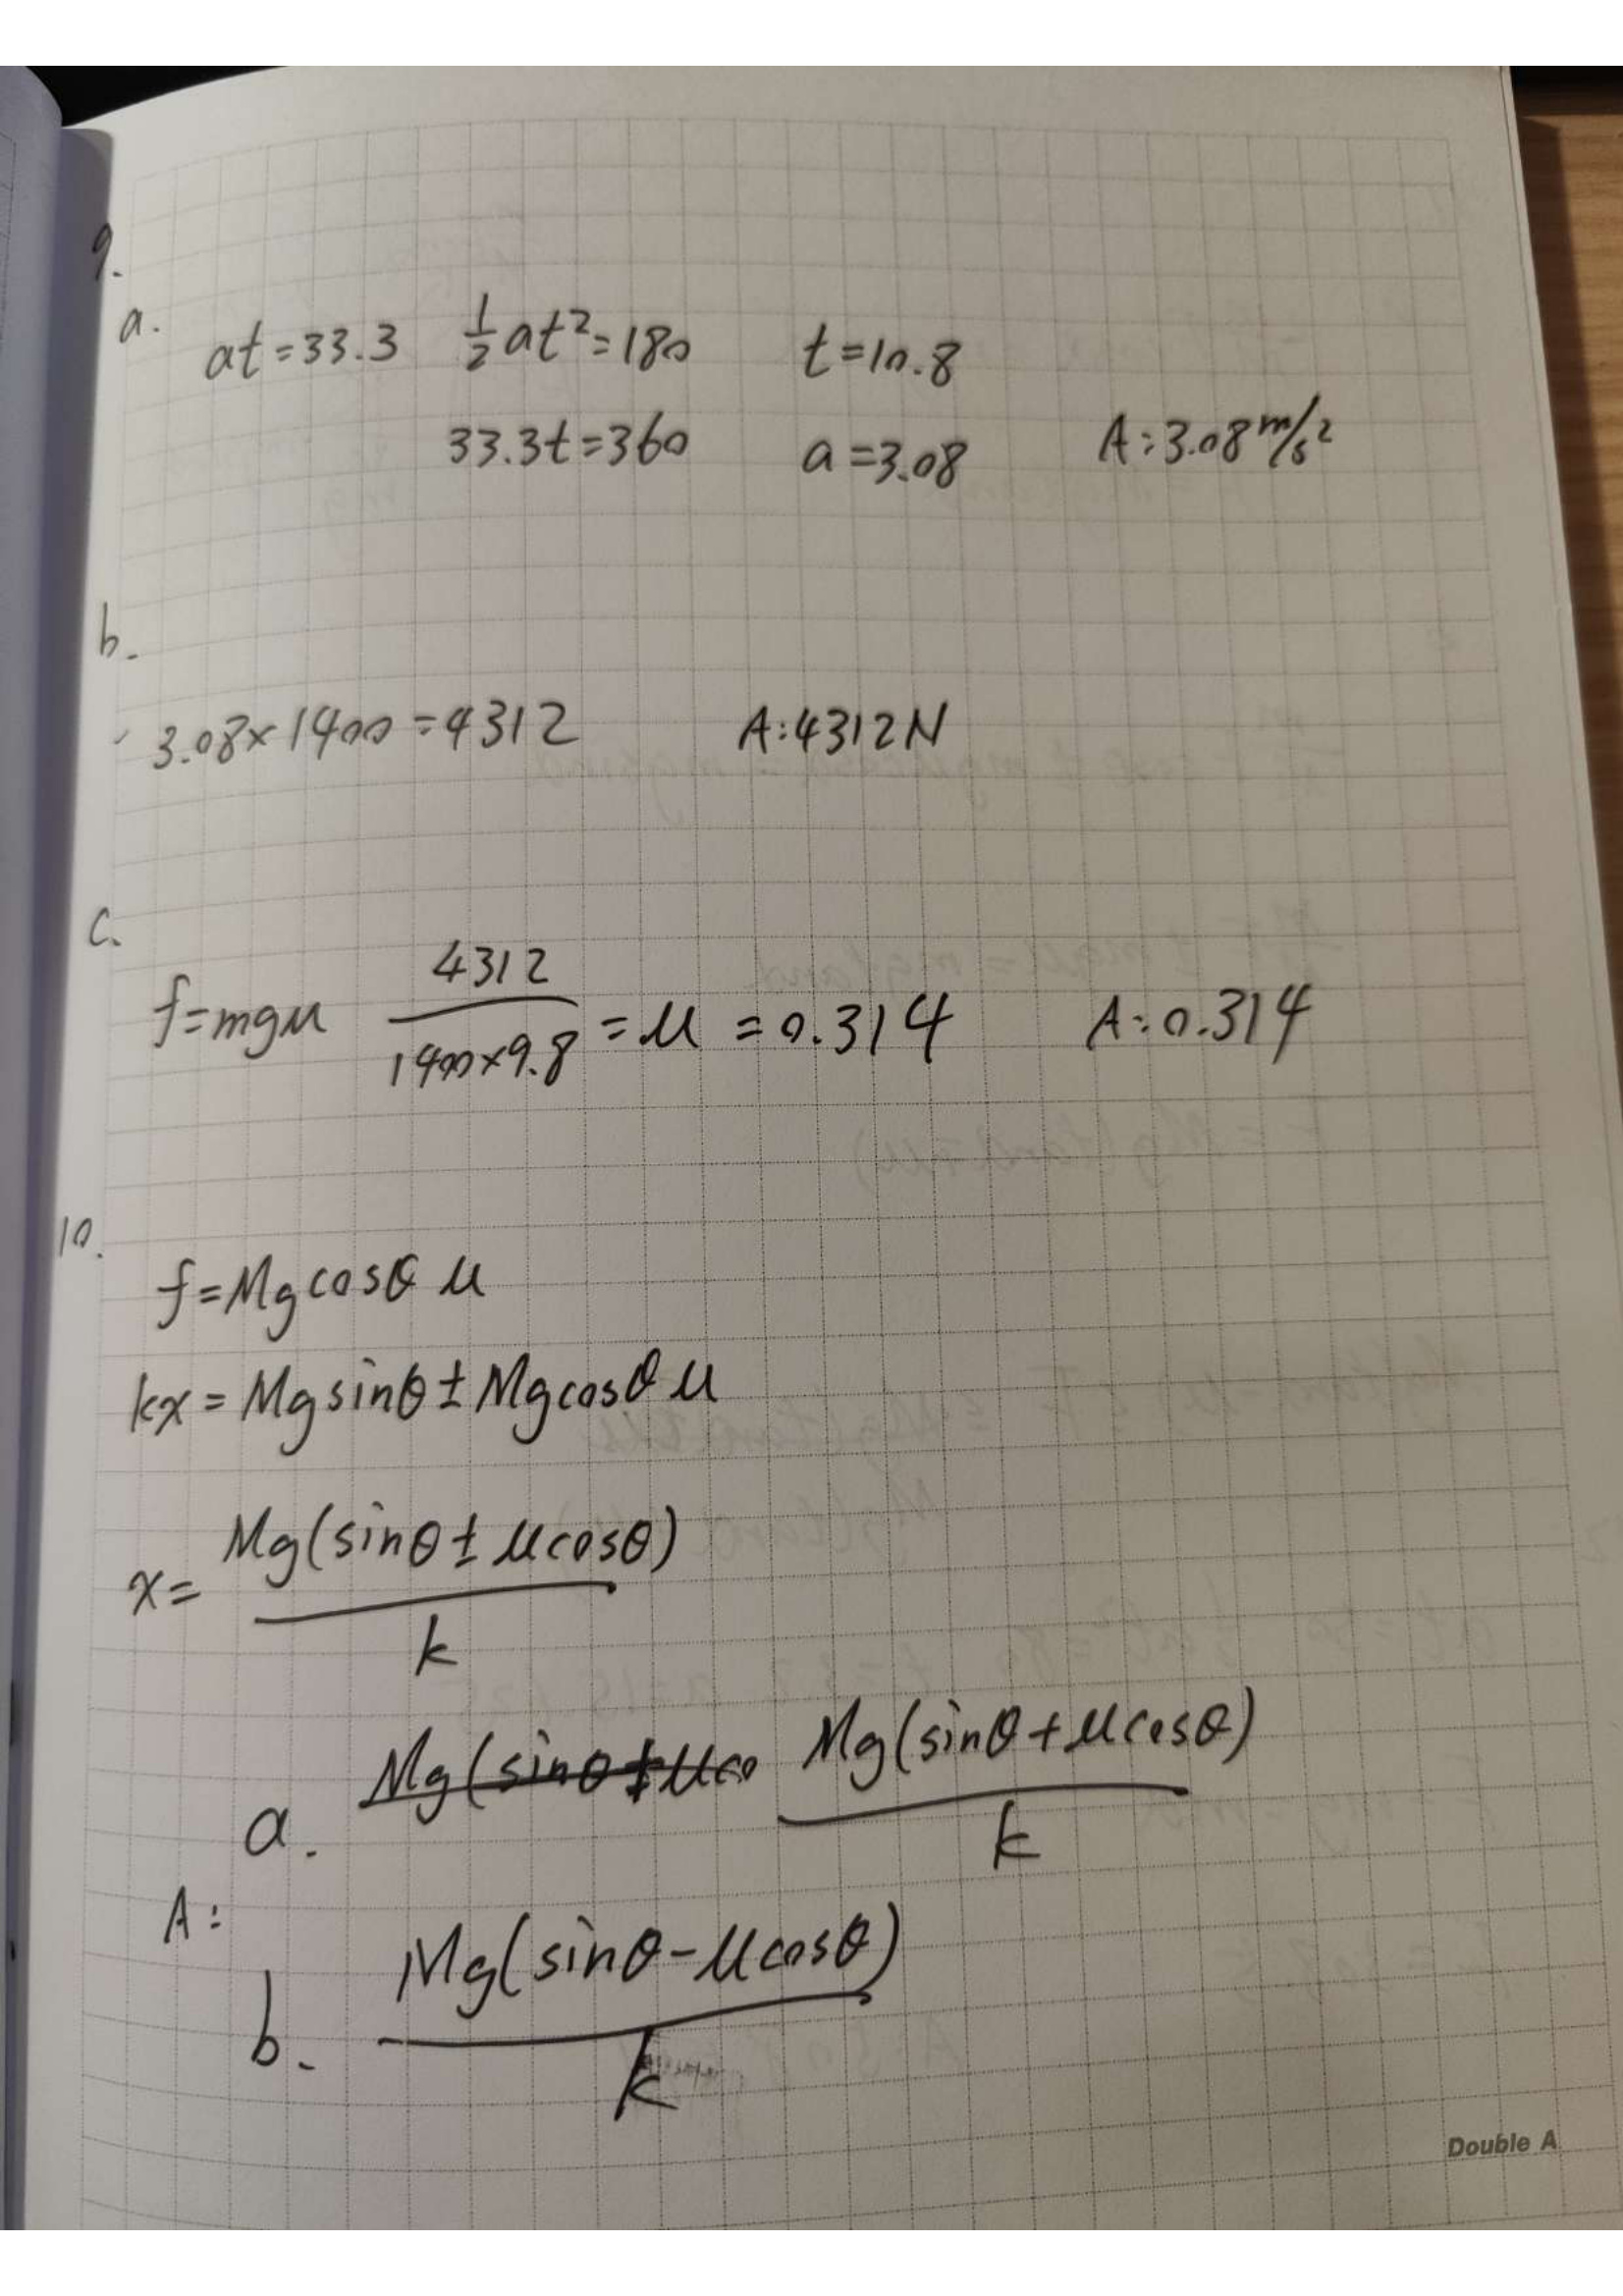 9.
a. at=33.3 ½at²=180 t=10.8
33.3t=360 a=3.08 A:3.08 m/s²
b.
3.08×1400=4312 A:4312N
c.
f=mgμ 4312/1400×9.8 =μ =0.314 A:0.314
10.
f=Mgcosθμ
kx=Mgsinθ±Mgcosθμ
x= Mg(sinθ±μcosθ)/k
a. Mg(sinθ±μco Mg(sinθ+μcosθ)/k
A:
b. Mg(sinθ-μcosθ)/k
Double A